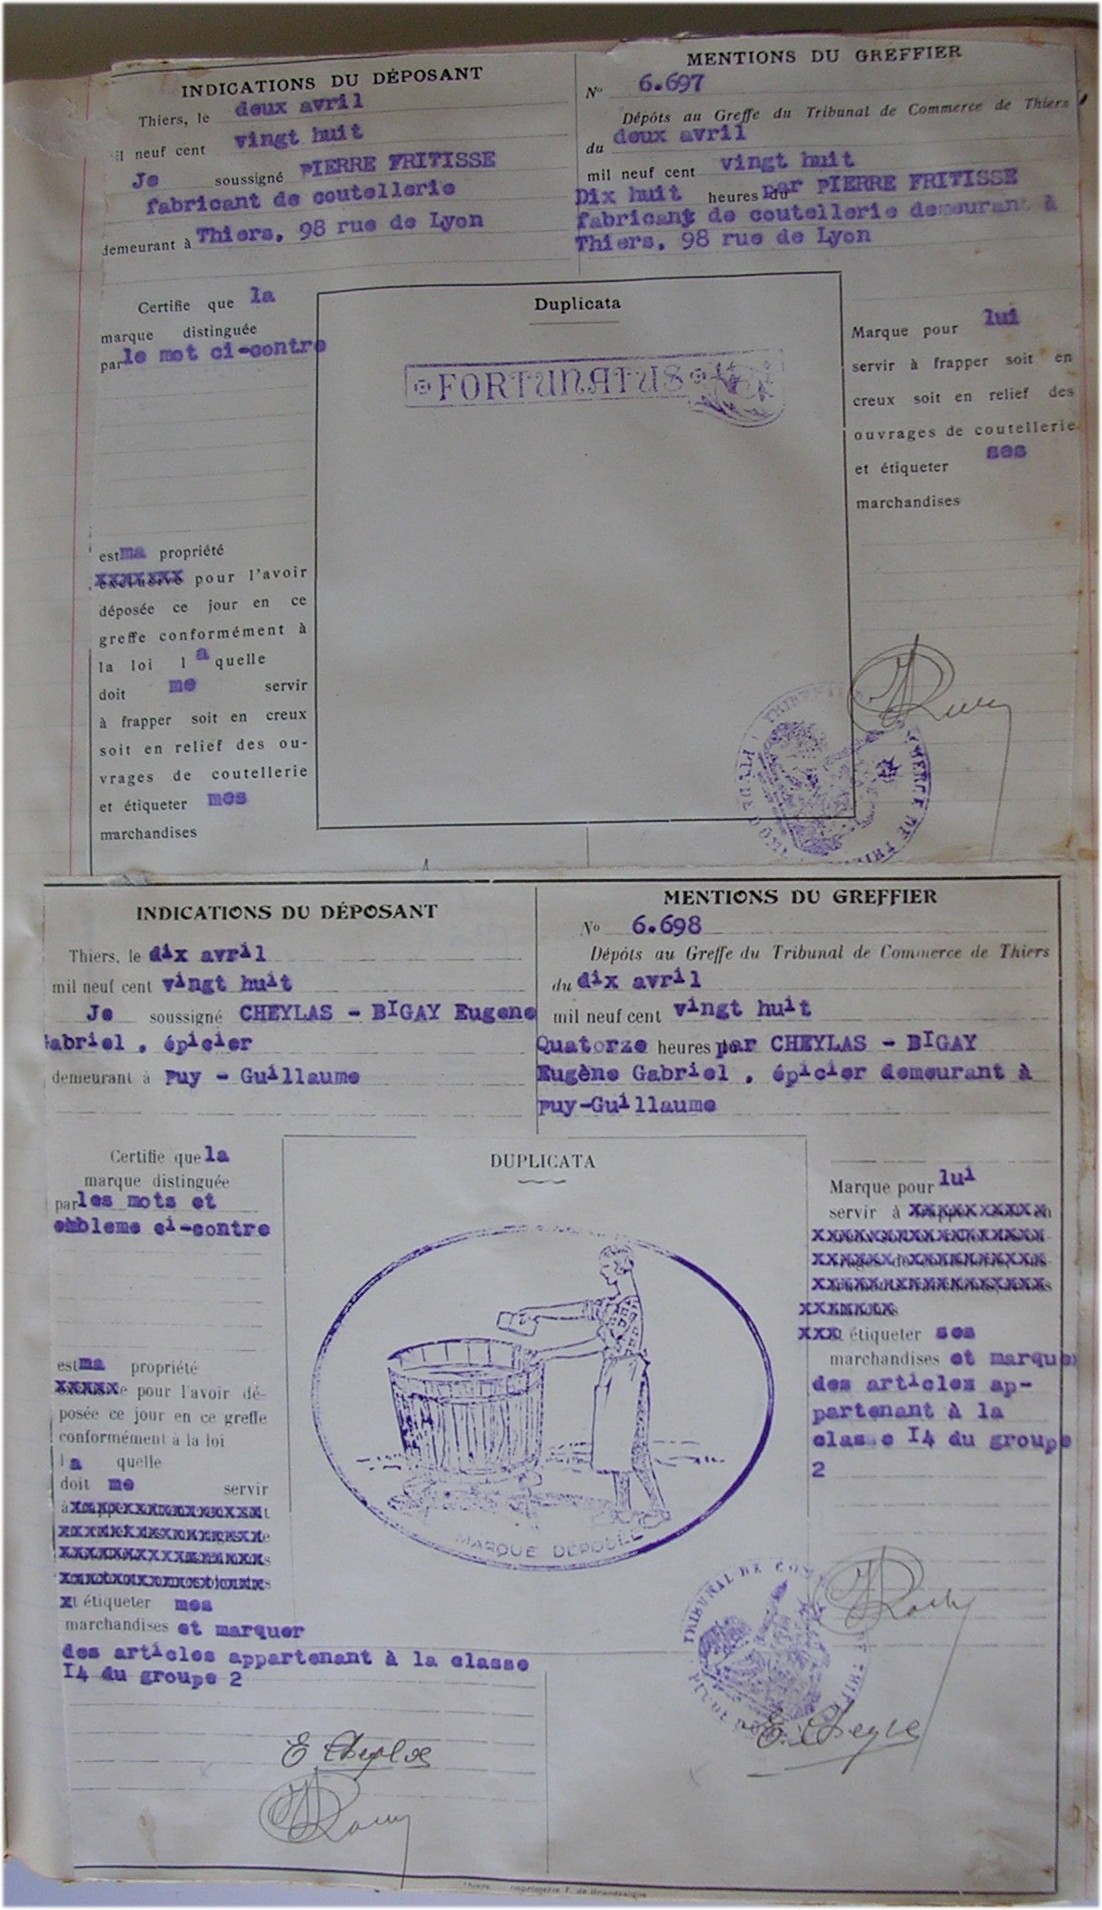 INDICATIONS DU DÉPOSANT
Thiers, le deux avril
il neuf cent vingt huit
Je soussigné PIERRE FRITISSE
fabricant de coutellerie
demeurant à Thiers, 98 rue de Lyon
MENTIONS DU GREFFIER
No 6.697
Dépôts au Greffe du Tribunal de Commerce de Thiers
du deux avril
mil neuf cent vingt huit
Dix huit heures par PIERRE FRITISSE
fabricant de coutellerie demeurant à
Thiers, 98 rue de Lyon
Certifie que la
marque distinguée
par le mot ci-contre
est ma propriété
pour l'avoir
déposée ce jour en ce
greffe conformément à
la loi laquelle
doit me servir
à frapper soit en creux
soit en relief des ou-
vrages de coutellerie
et étiqueter mes
marchandises
Duplicata
FORTUNATUS
Marque pour lui
servir à frapper soit en
creux soit en relief des
ouvrages de coutellerie
et étiqueter ses
marchandises
INDICATIONS DU DÉPOSANT
Thiers, le dix avril
mil neuf cent vingt huit
Je soussigné CHEYLAS - BIGAY Eugene
Gabriel , épicier
demeurant à Puy - Guillaume
MENTIONS DU GREFFIER
No 6.698
Dépôts au Greffe du Tribunal de Commerce de Thiers
du dix avril
mil neuf cent vingt huit
Quatorze heures par CHEYLAS - BIGAY
Eugène Gabriel , épicier demeurant à
Puy-Guillaume
Certifie que la
marque distinguée
par les mots et
embleme ci-contre
est ma propriété
pour l'avoir dé-
posée ce jour en ce greffe
conformément à la loi
la quelle
doit me servir
à
étiqueter mes
marchandises et marquer
des articles appartenant à la classe
I4 du groupe 2
DUPLICATA
MARQUE DEPOSEE
Marque pour lui
servir à
étiqueter ses
marchandises et marquer
des articles ap-
partenant à la
classe I4 du groupe
2
TRIBUNAL DE COM
E. Cheylas
E. Cheylas